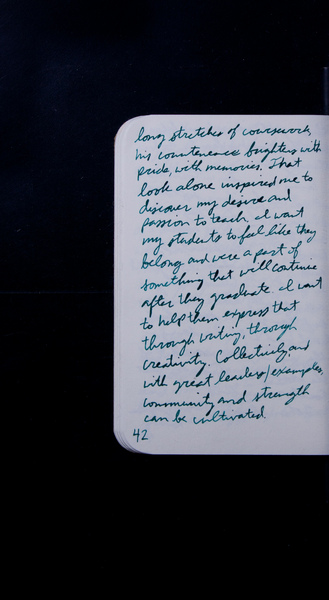 long stretches of coursework,
his countenance brightens with
pride, with memories. That
look alone inspired me to
discover my desire and
passion to teach. I want
my students to feel like they
belong and were a part of
something that will continue
after they graduate. I want
to help them express that
through writing, through
creativity. Collectively, and
with great leaders/examples,
community and strength
can be cultivated
42